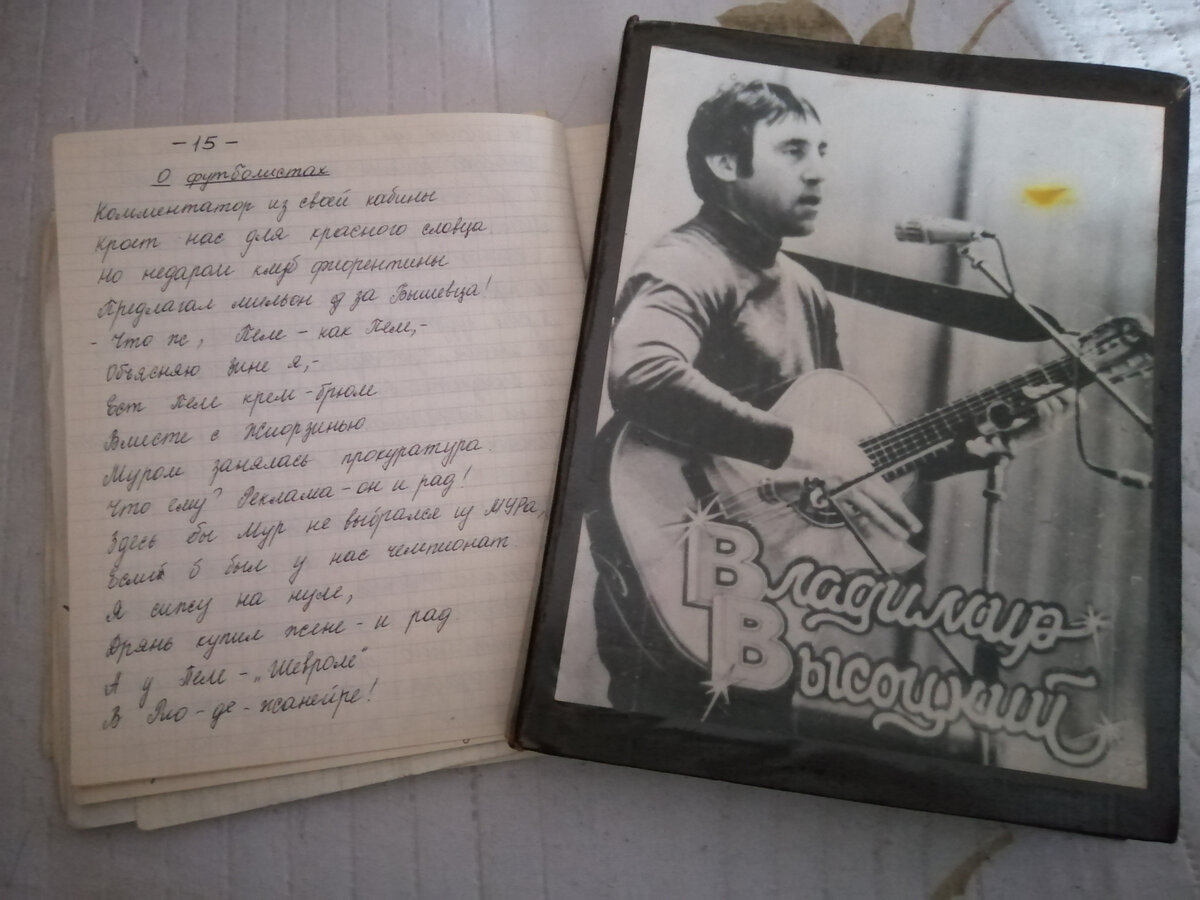 - 15 -
О футболистах
Комментатор из своей кабины
кроет нас для красного словца.
Но недаром клуб фиорентины
Предлагал мильон за Бышевца!
- Что ж, Пеле - как Пеле,-
Объясняю Зине я,-
Ест Пеле крем-брюле
Вместе с Жиорзинью
Муром занялась прокуратура.
Что ему? Реклама - он и рад!
Здесь бы Мур не выбрался из МУРа,
Если б был у нас чемпионат.
Я сижу на нуле,
Дрянь купил жене - и рад.
А у Пеле - "Шевроле"
В Рио-де-жанейре!
Владимир
Высоцкий